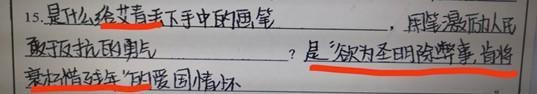 15.是什么给艾青丢下手中的画笔，用笔激励人民
敢于反抗的勇气？是"欲为圣明除弊事，肯将
衰朽惜残年"的爱国情怀